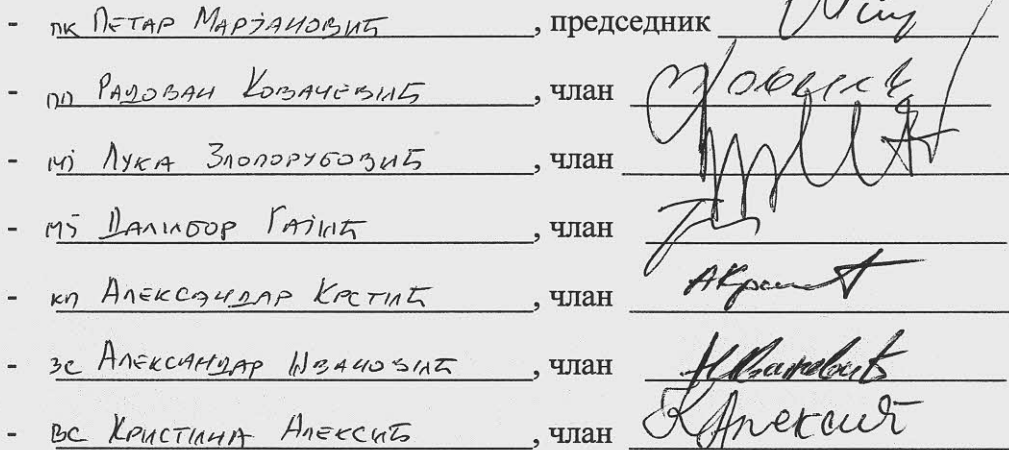 - пк Петар Марјановић, председник
- пп Радован Ковачевић, члан
- мј Лука Злопорубовић, члан
- мј Далибор Гајић, члан
- кп Александар Крстић, члан
- зс Александар Ивановић, члан
- вс Кристина Алексић, члан К Алексић